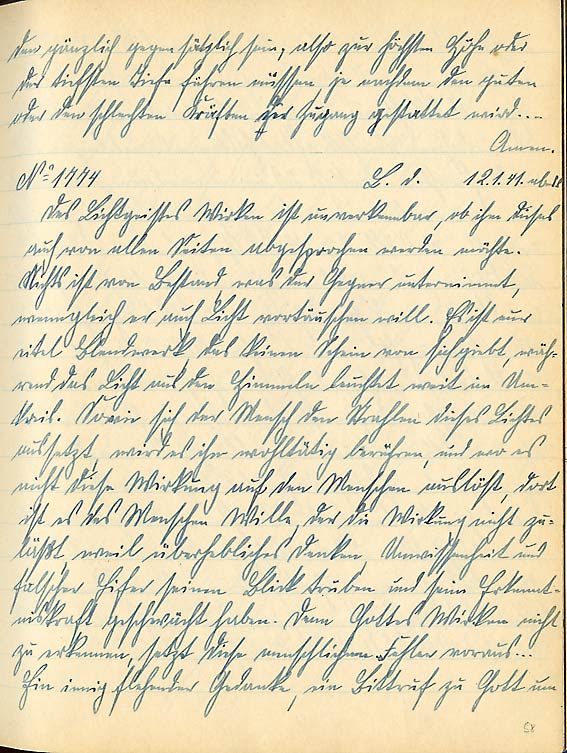 den gänzlich gegensätzlich sein, also zur höchsten Höhe oder
der tiefsten Tiefe führen müssen, je nachdem den guten
oder den schlechten Kräften der Zugang gestattet wird...
Amen.
No 1774 B. d. 12.1.41. abds
Des Lichtgeistes Wirken ist unverkennbar, ob ihm dieses
auch von allen Seiten abgesprochen werden möchte.
Nichts ist von Bestand, was der Gegner unternimmt,
wenngleich er auch Licht vortäuschen will. Es ist nur
eitel Blendwerk, das keinen Schein von sich giebt, wäh-
rend das Licht aus den Himmeln leuchtet weit im Um-
kreis. Sowie sich der Mensch den Strahlen dieses Lichtes
aussetzt, wird es ihn wohltätig berühren, und wo es
nicht diese Wirkung auf den Menschen auslöst, dort
ist es des Menschen Wille, der die Wirkung nicht zu-
läßt, weil überhebliches Denken, Unwissenheit und
falscher Eifer seinen Blick trüben und seine Erkennt-
niskraft geschwächt haben. Denn Gottes Wirken nicht
zu erkennen, setzt diese menschlichen Fehler voraus...
Ein innig flehender Gedanke, ein Bittruf zu Gott um
58